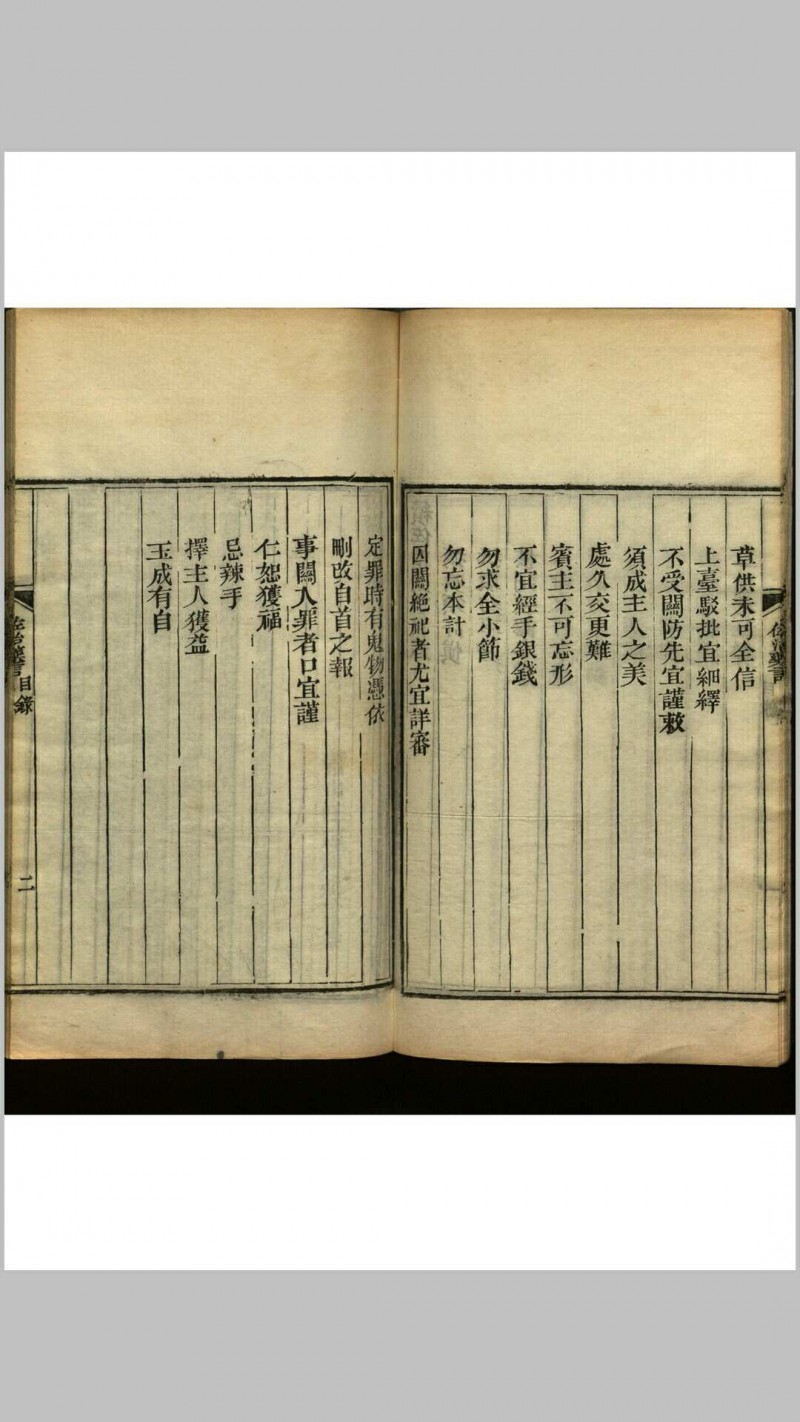 草供未可全信
上臺駁批宜細繹
不受關防先宜謹敕
須成主人之美
處久交更難
賓主不可忘形
不宜經手銀錢
勿求全小節
勿忘本計
囚關絶祀者尤宜詳審
定罪時有鬼物憑依
刪改自首之報
事關入罪者口宜謹
仁恕獲福
忌辣手
擇主人獲益
玉成有自
佐治藥言 目錄
二